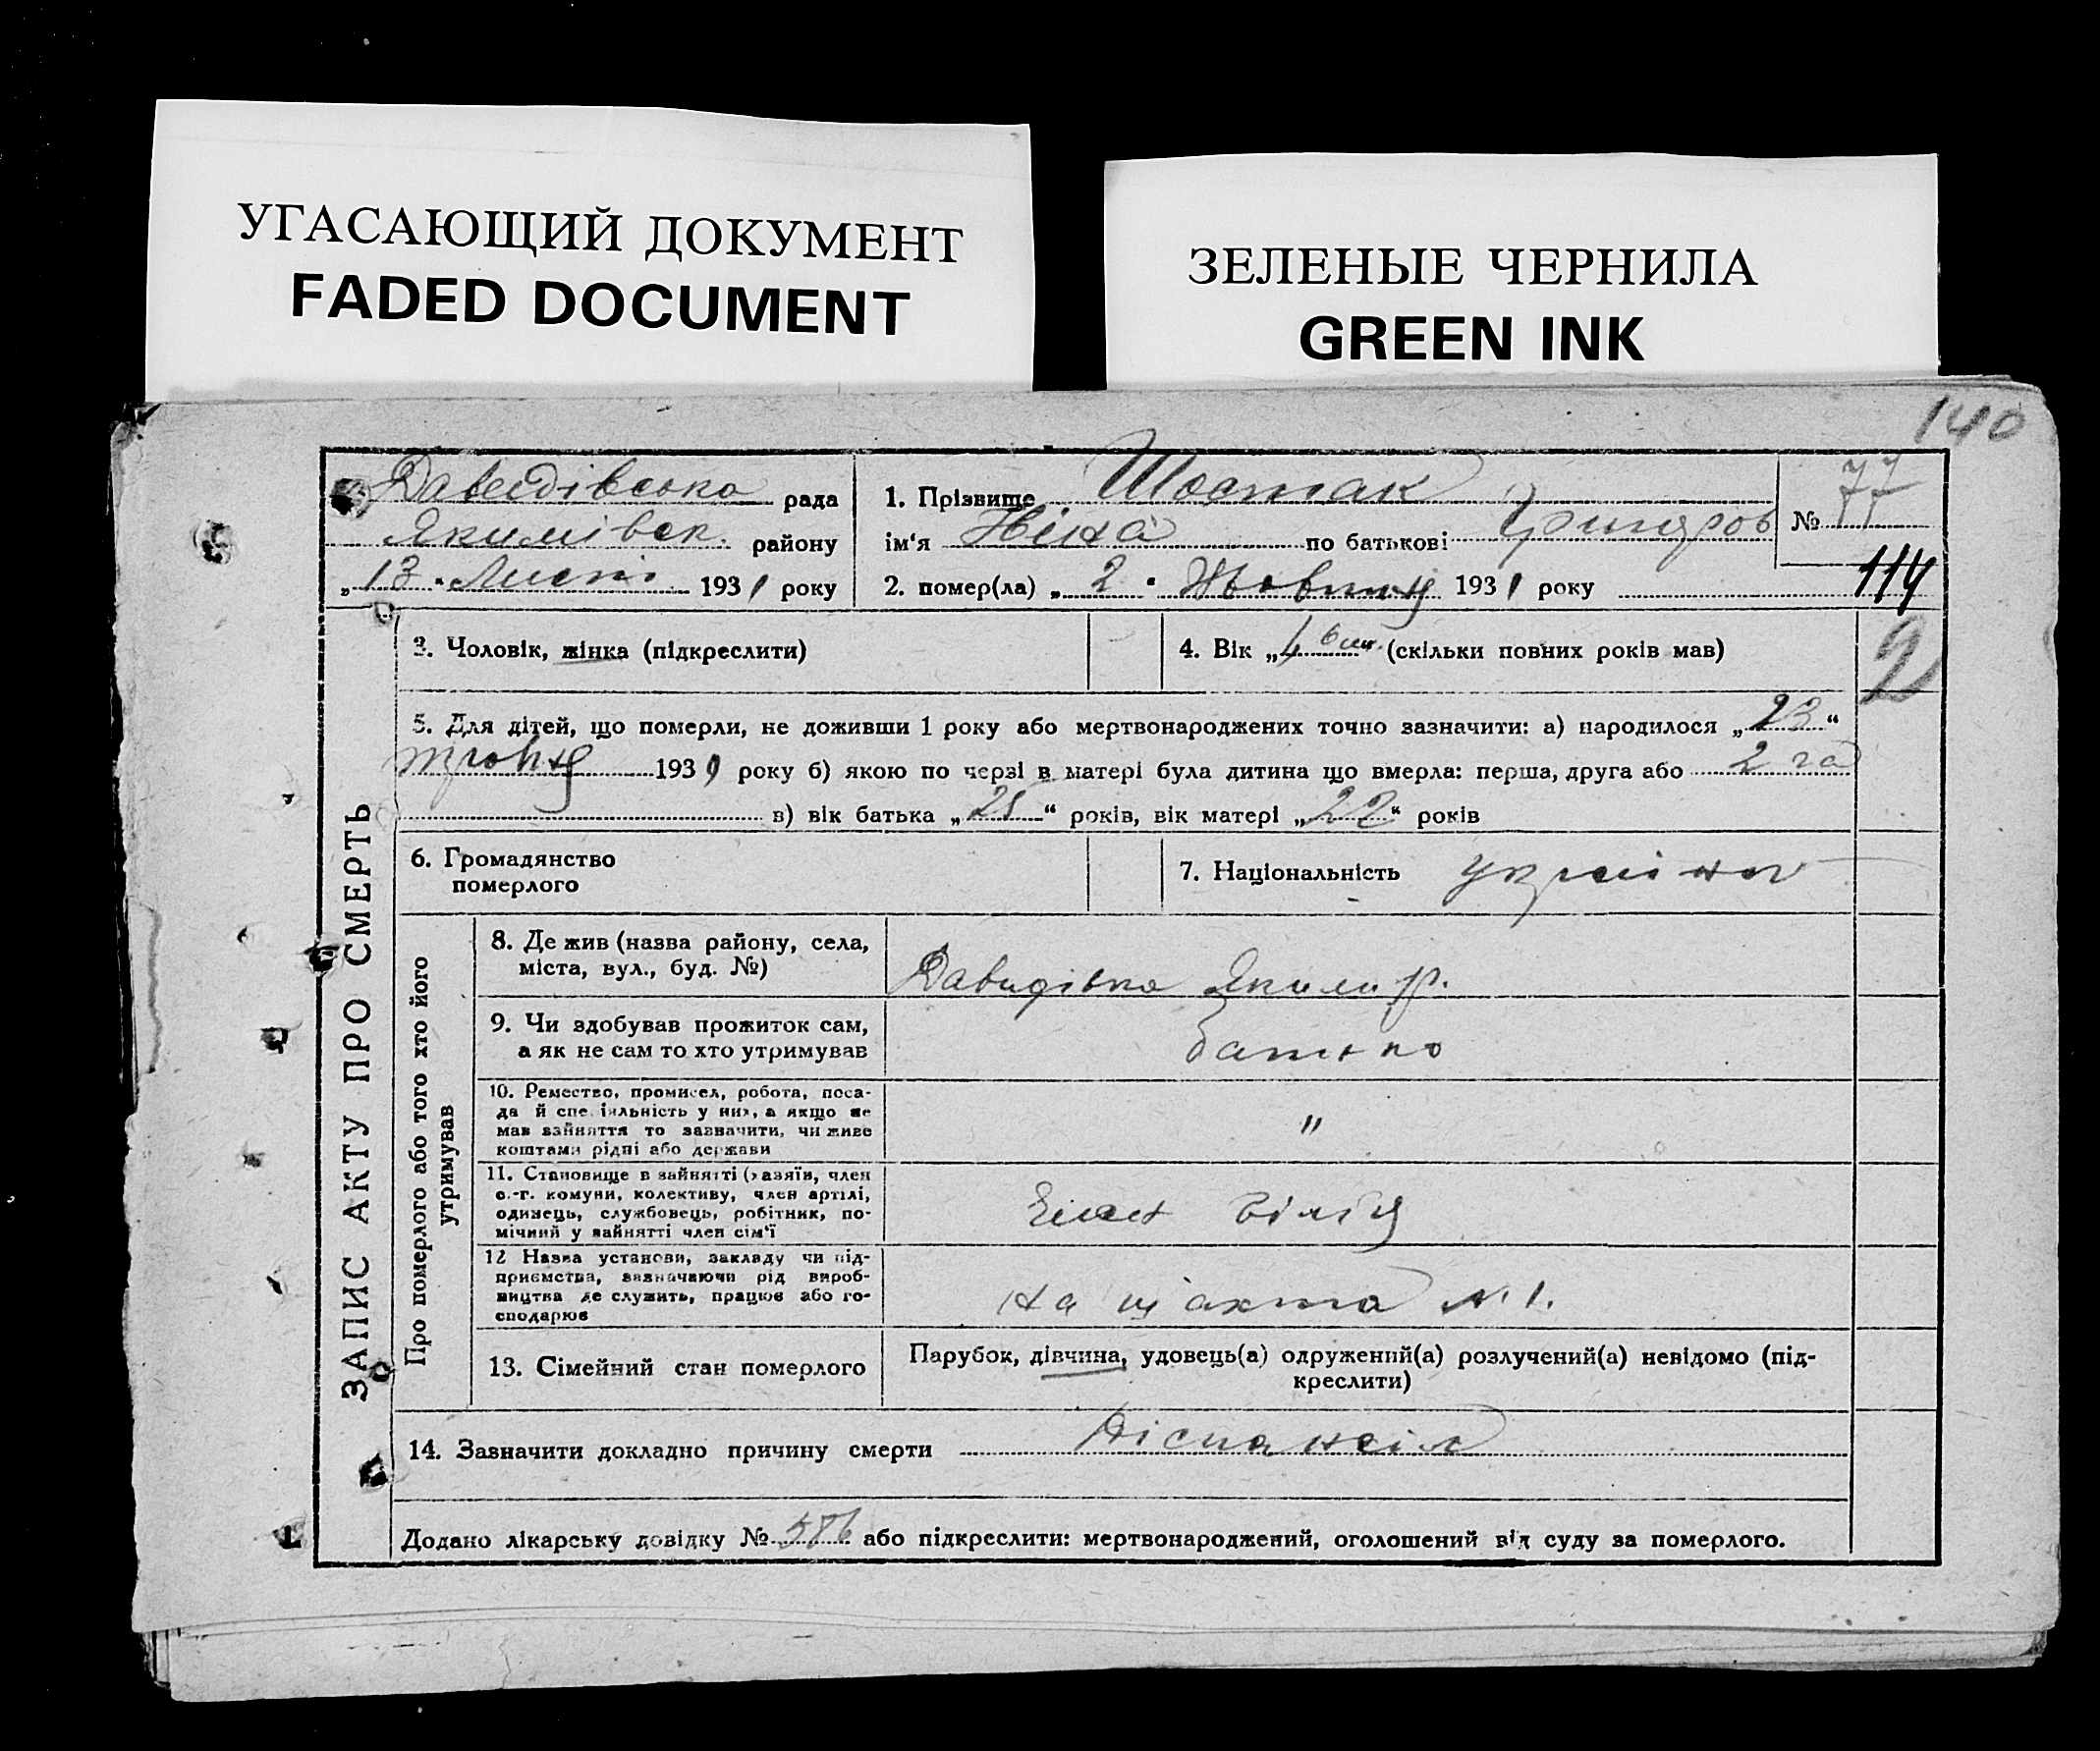 УГАСАЮЩИЙ ДОКУМЕНТ
FADED DOCUMENT
ЗЕЛЕНЫЕ ЧЕРНИЛА
GREEN INK
140
Давидівська рада
Якимівск. району
„13 " Листо. 1931 року
1. Прізвище Шостак
ім'я Ніна по батькові
2. помер(ла) „ 2 " Жовтня 1931 року
№ 77
114
ЗАПИС АКТУ ПРО СМЕРТЬ
3. Чоловік, жінка (підкреслити)
4. Вік „ (скільки повних років мав)
2
5. Для дітей, що померли, не доживши 1 року або мертвонароджених точно зазначити: а) народилося „ 23 “
травня 1931 року б) якою по черзі в матері була дитина що вмерла: перша, друга або 2 га
в) вік батька „ 25 “ років, вік матері „ 22 “ років
6. Громадянство
померлого
7. Національність
Про померлого або того хто його
утримував
8. Де жив (назва району, села,
міста, вул., буд. №)
Давидівка Яким р.
9. Чи здобував прожиток сам,
а як не сам то хто утримував
батько
10. Ремество, промисел, робота, поса-
да й спеціяльність у них, а якщо не
мав зайняття то зазначити, чи живе
коштами рідні або держави
"
11. Становище в зайнятті (хазяїн, член
с.-г. комуни, колективу, член артілі,
одинець, службовець, робітник, по-
мічний у зайнятті член сім'ї
12 Назва установи, закладу чи під-
приємства, зазначаючи рід вироб-
ництва де служить, працює або го-
сподарює
на шахта № 1.
13. Сімейний стан померлого
Парубок, дівчина, удовець(а) одружений(а) розлучений(а) невідомо (під-
креслити)
14. Зазначити докладно причину смерти
Додано лікарську довідку № 586 або підкреслити: мертвонароджений, оголошений від суду за померлого.